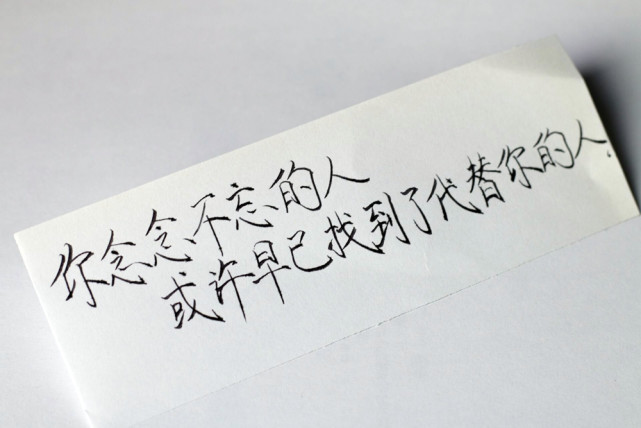 你念念不忘的人
或许早已找到了代替你的人.